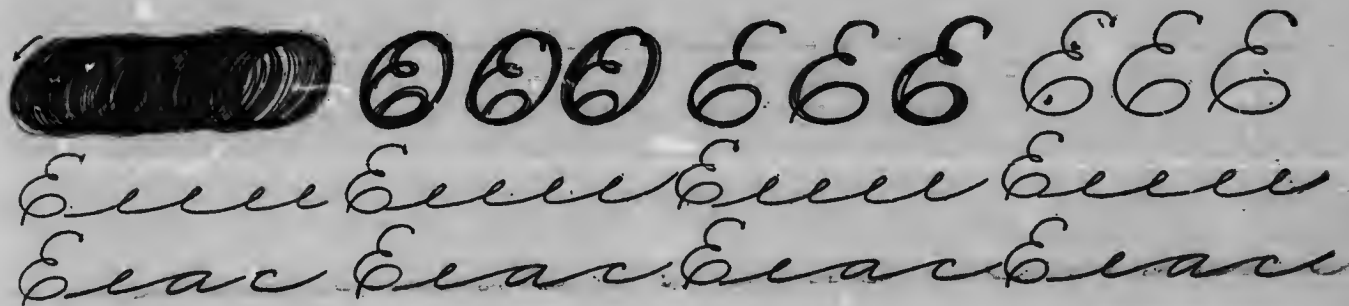 E E E E E E E E E
Eeeee Eeeee Eeeee Eeeee
Eeac Eeac Eeac Eeac